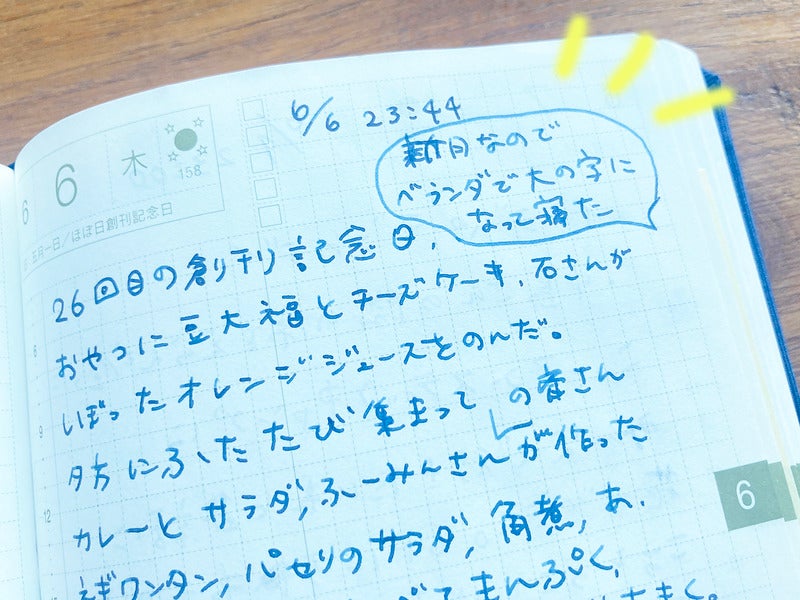 6/6 23:44
新月なので
ベランダで大の字に
なって寝た
6
6
木
158
五月一日/ほぼ日創刊記念日
26回目の創刊記念日、
おやつに豆大福とチーズケーキ、石さんが
しぼったオレンジジュースをのんだ。
夕方にふたたび集まって
の容さん
カレーとサラダ、ふーみんさんが作った
ねぎワンタン、パセリのサラダ、角煮、あ、
べてまんぷく、
6
8
9
12